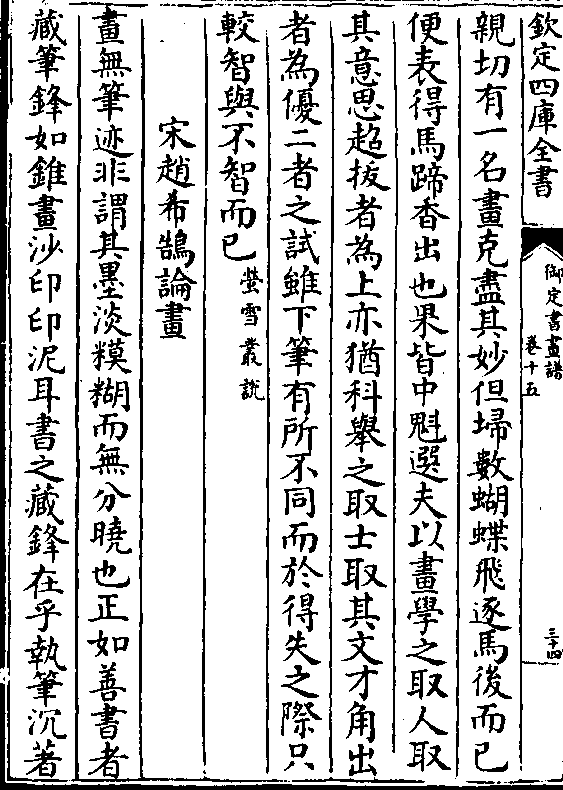 欽定四庫全書
御定書畫譜
卷十五
三十四
親切有一名畫克盡其妙但埽數蝴蝶飛逐馬後而已
便表得馬蹄香出也果皆中魁選夫以畫學之取人取
其意思超拔者為上亦猶科舉之取士取其文才角出
者為優二者之試雖下筆有所不同而於得失之際只
較智與不智而已螢雪叢說
宋趙希鵠論畫
畫無筆迹非謂其墨淡糢糊而無分曉也正如善書者
藏筆鋒如錐畫沙印印泥耳書之藏鋒在乎執筆沉著